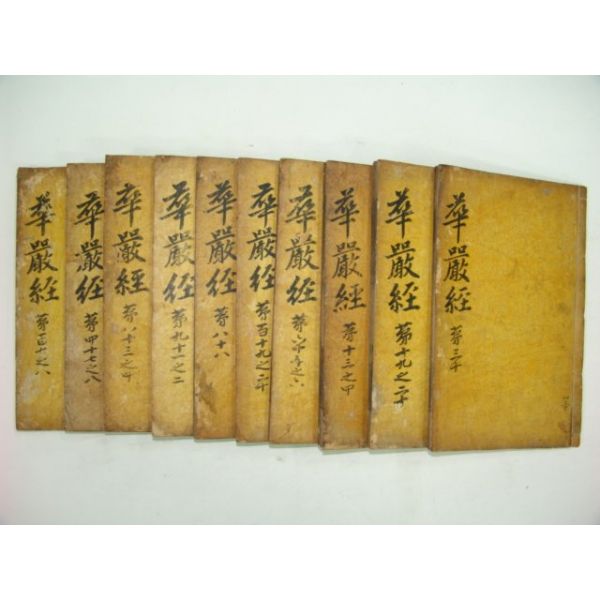 華嚴經 第三十
華嚴經 第十九之二十
華嚴經 第十三之
華嚴經 第之六
華嚴經 第百十九之二十
華嚴經 第八十八
華嚴經 第九十一之二
華嚴經 第八十三之四
華嚴經 第四十七之八
華嚴經 第百十之八